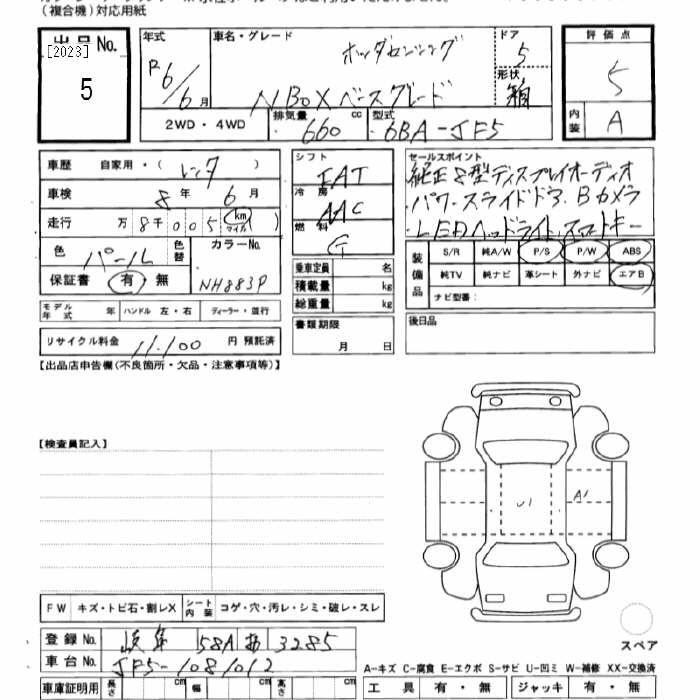 (複合機)対応用紙
出品No.
[2023]
5
年式
R6/6月
車名・グレード
ホンダセンシング
N BOX ベースグレード
ドア
5
形状
箱
評価点
5
内装
A
2WD・4WD
排気量
660 cc
型式
6BA-JF5
車歴 自家用・(レンタ)
車検 8年 6月
走行 万 8千 005 (km マイル)
色 パール 色替
カラーNo.
NH883P
保証書 有・無
モデル年式 年 ハンドル 左・右 ディーラー・並行
リサイクル料金 11,100 円 預託済
シフト
FAT
冷房
AAC
燃料
G
乗車定員 名
積載量 kg
総重量 kg
書類期限
月 日
セールスポイント
純正8型ディスプレイオーディオ
パワースライドドア. Bカメラ
LEDヘッドライト. スマートキー
装備品
S/R 純A/W P/S P/W ABS
純TV 純ナビ 革シート 外ナビ エアB
ナビ型番:
後日品
【出品店申告欄(不良箇所・欠品・注意事項等)】
【検査員記入】
U1
A1
FW キズ・トビ石・割レX シート内装 コゲ・穴・汚レ・シミ・破レ・スレ
登録No. 岐阜 581 あ 3285
車台No. JF5-1081012
車庫証明用 長さ cm 幅 cm 高さ cm
スペア
A-キズ C-腐食 E-エクボ S-サビ U-凹ミ W-補修 XX-交換済
工具 有・無 ジャッキ 有・無